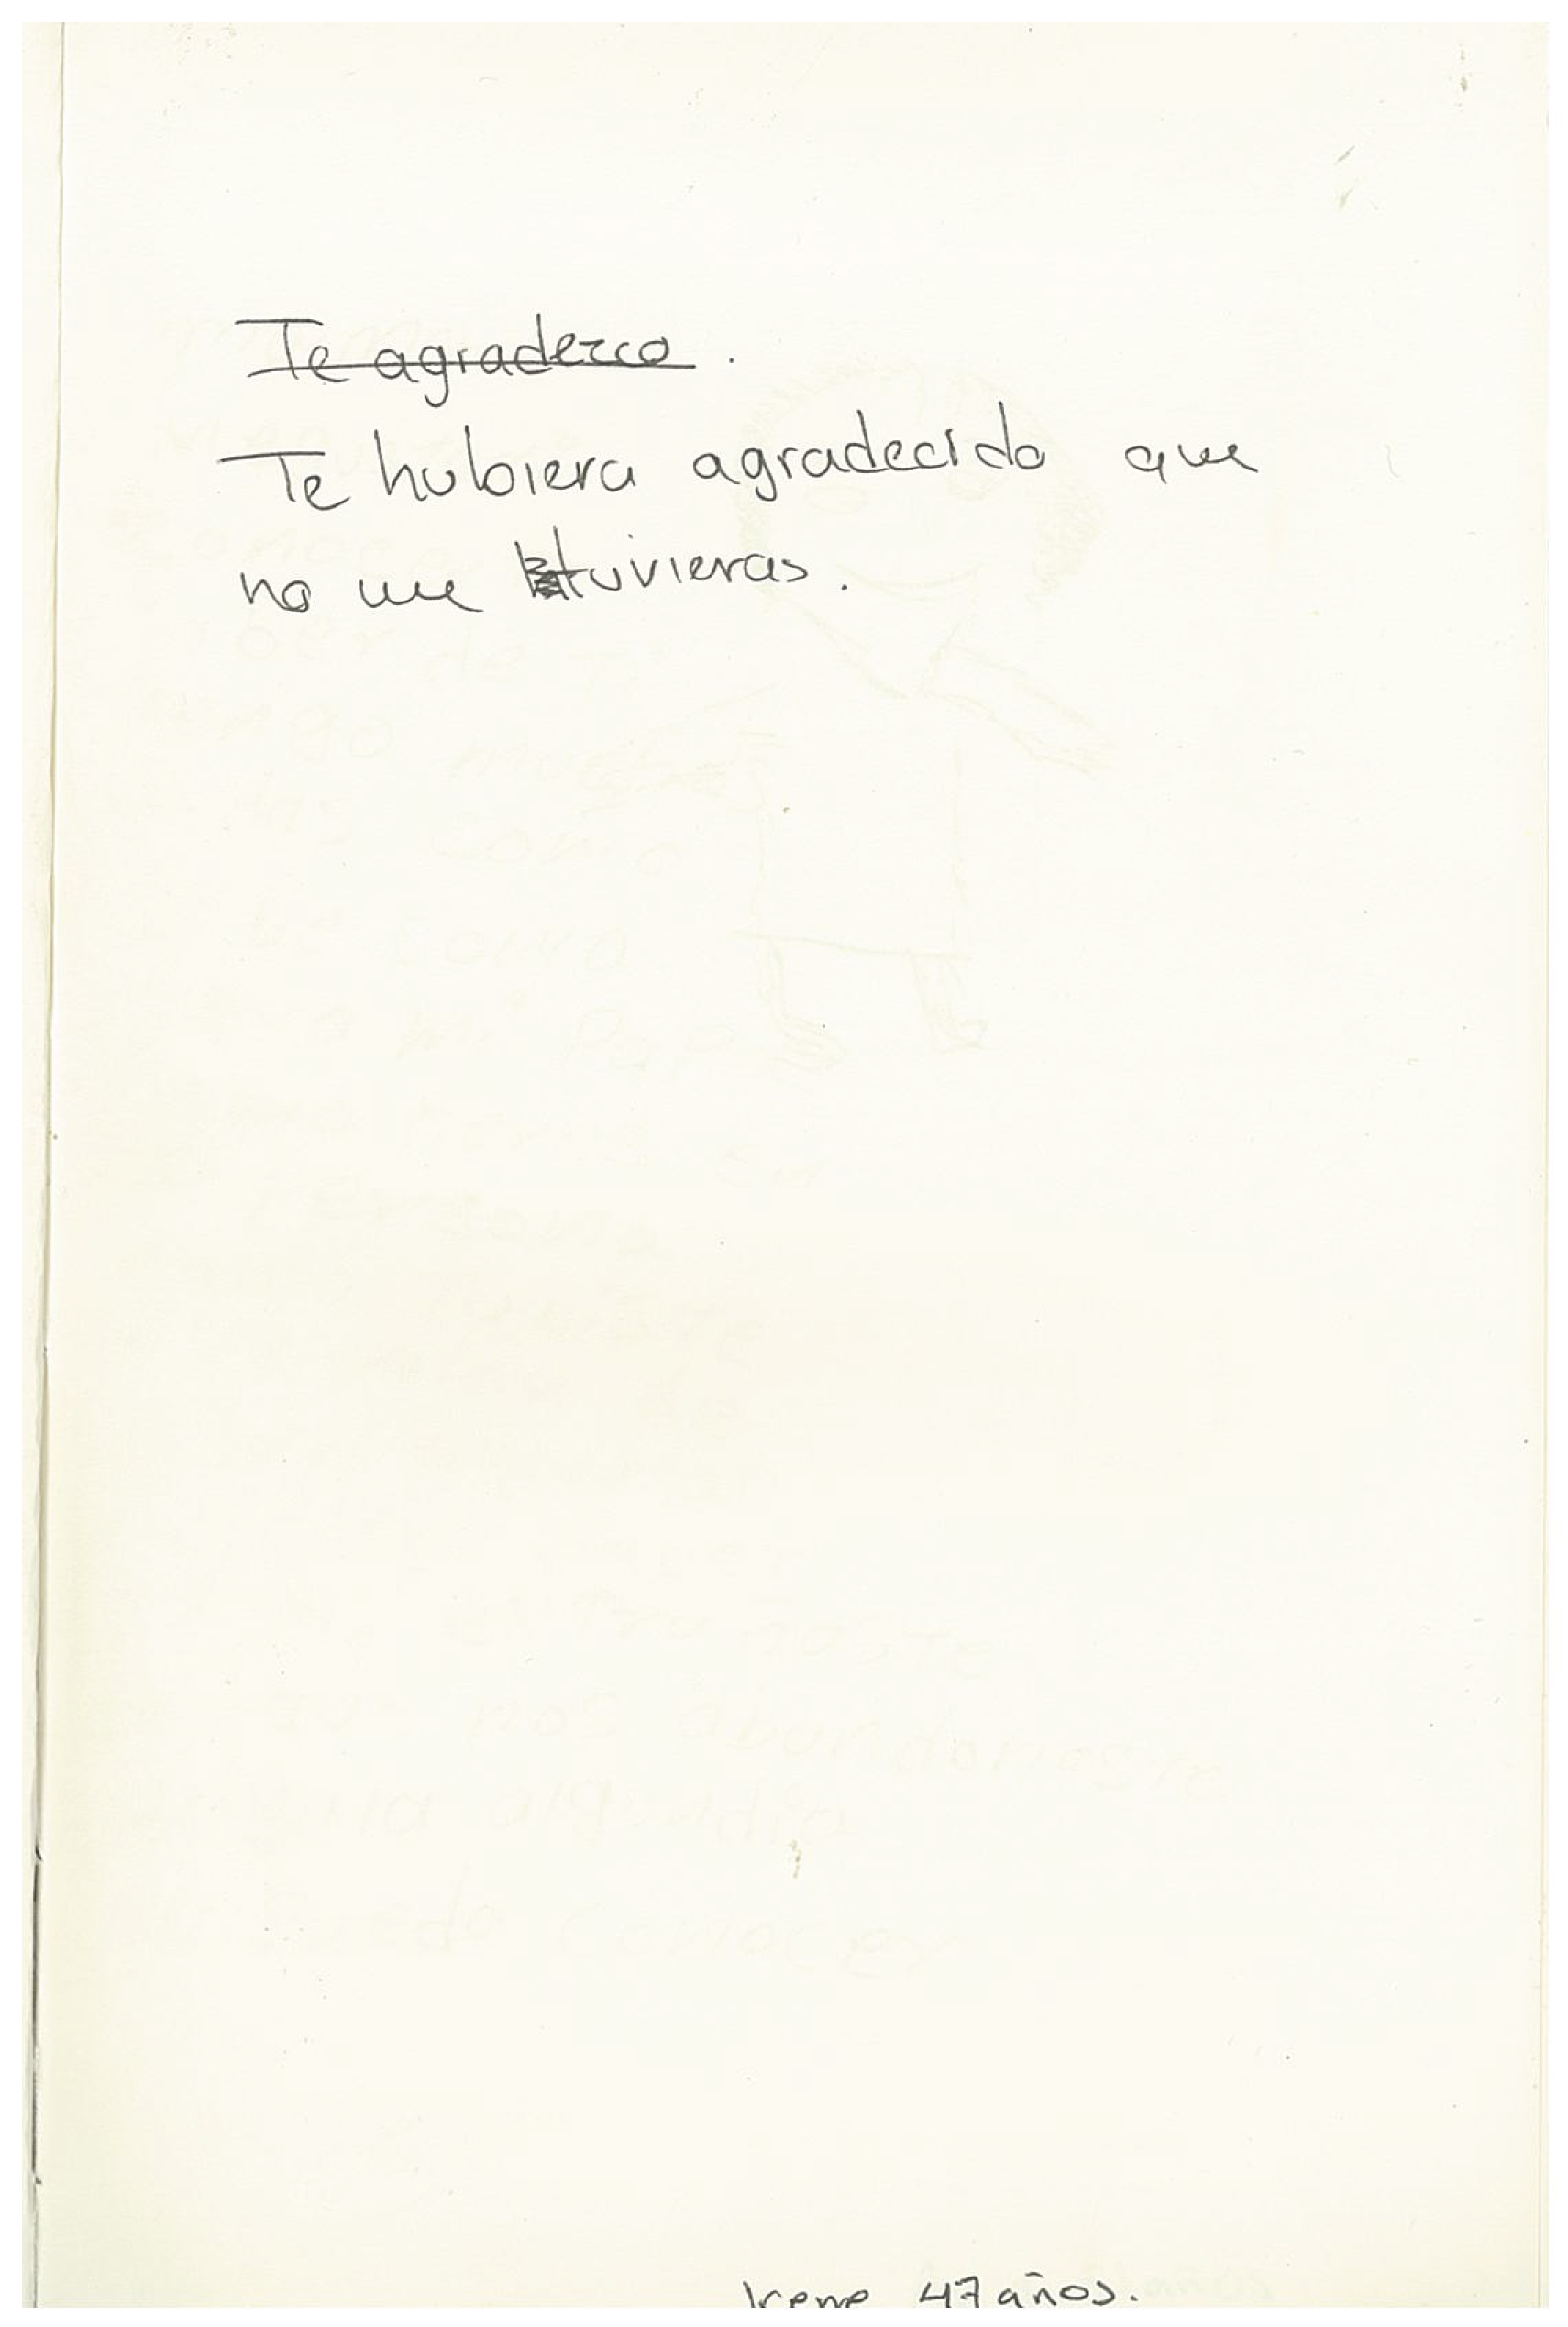 Te agradezco.
Te hubiera agradecido que
no me tuvieras.
Irene 47 años.